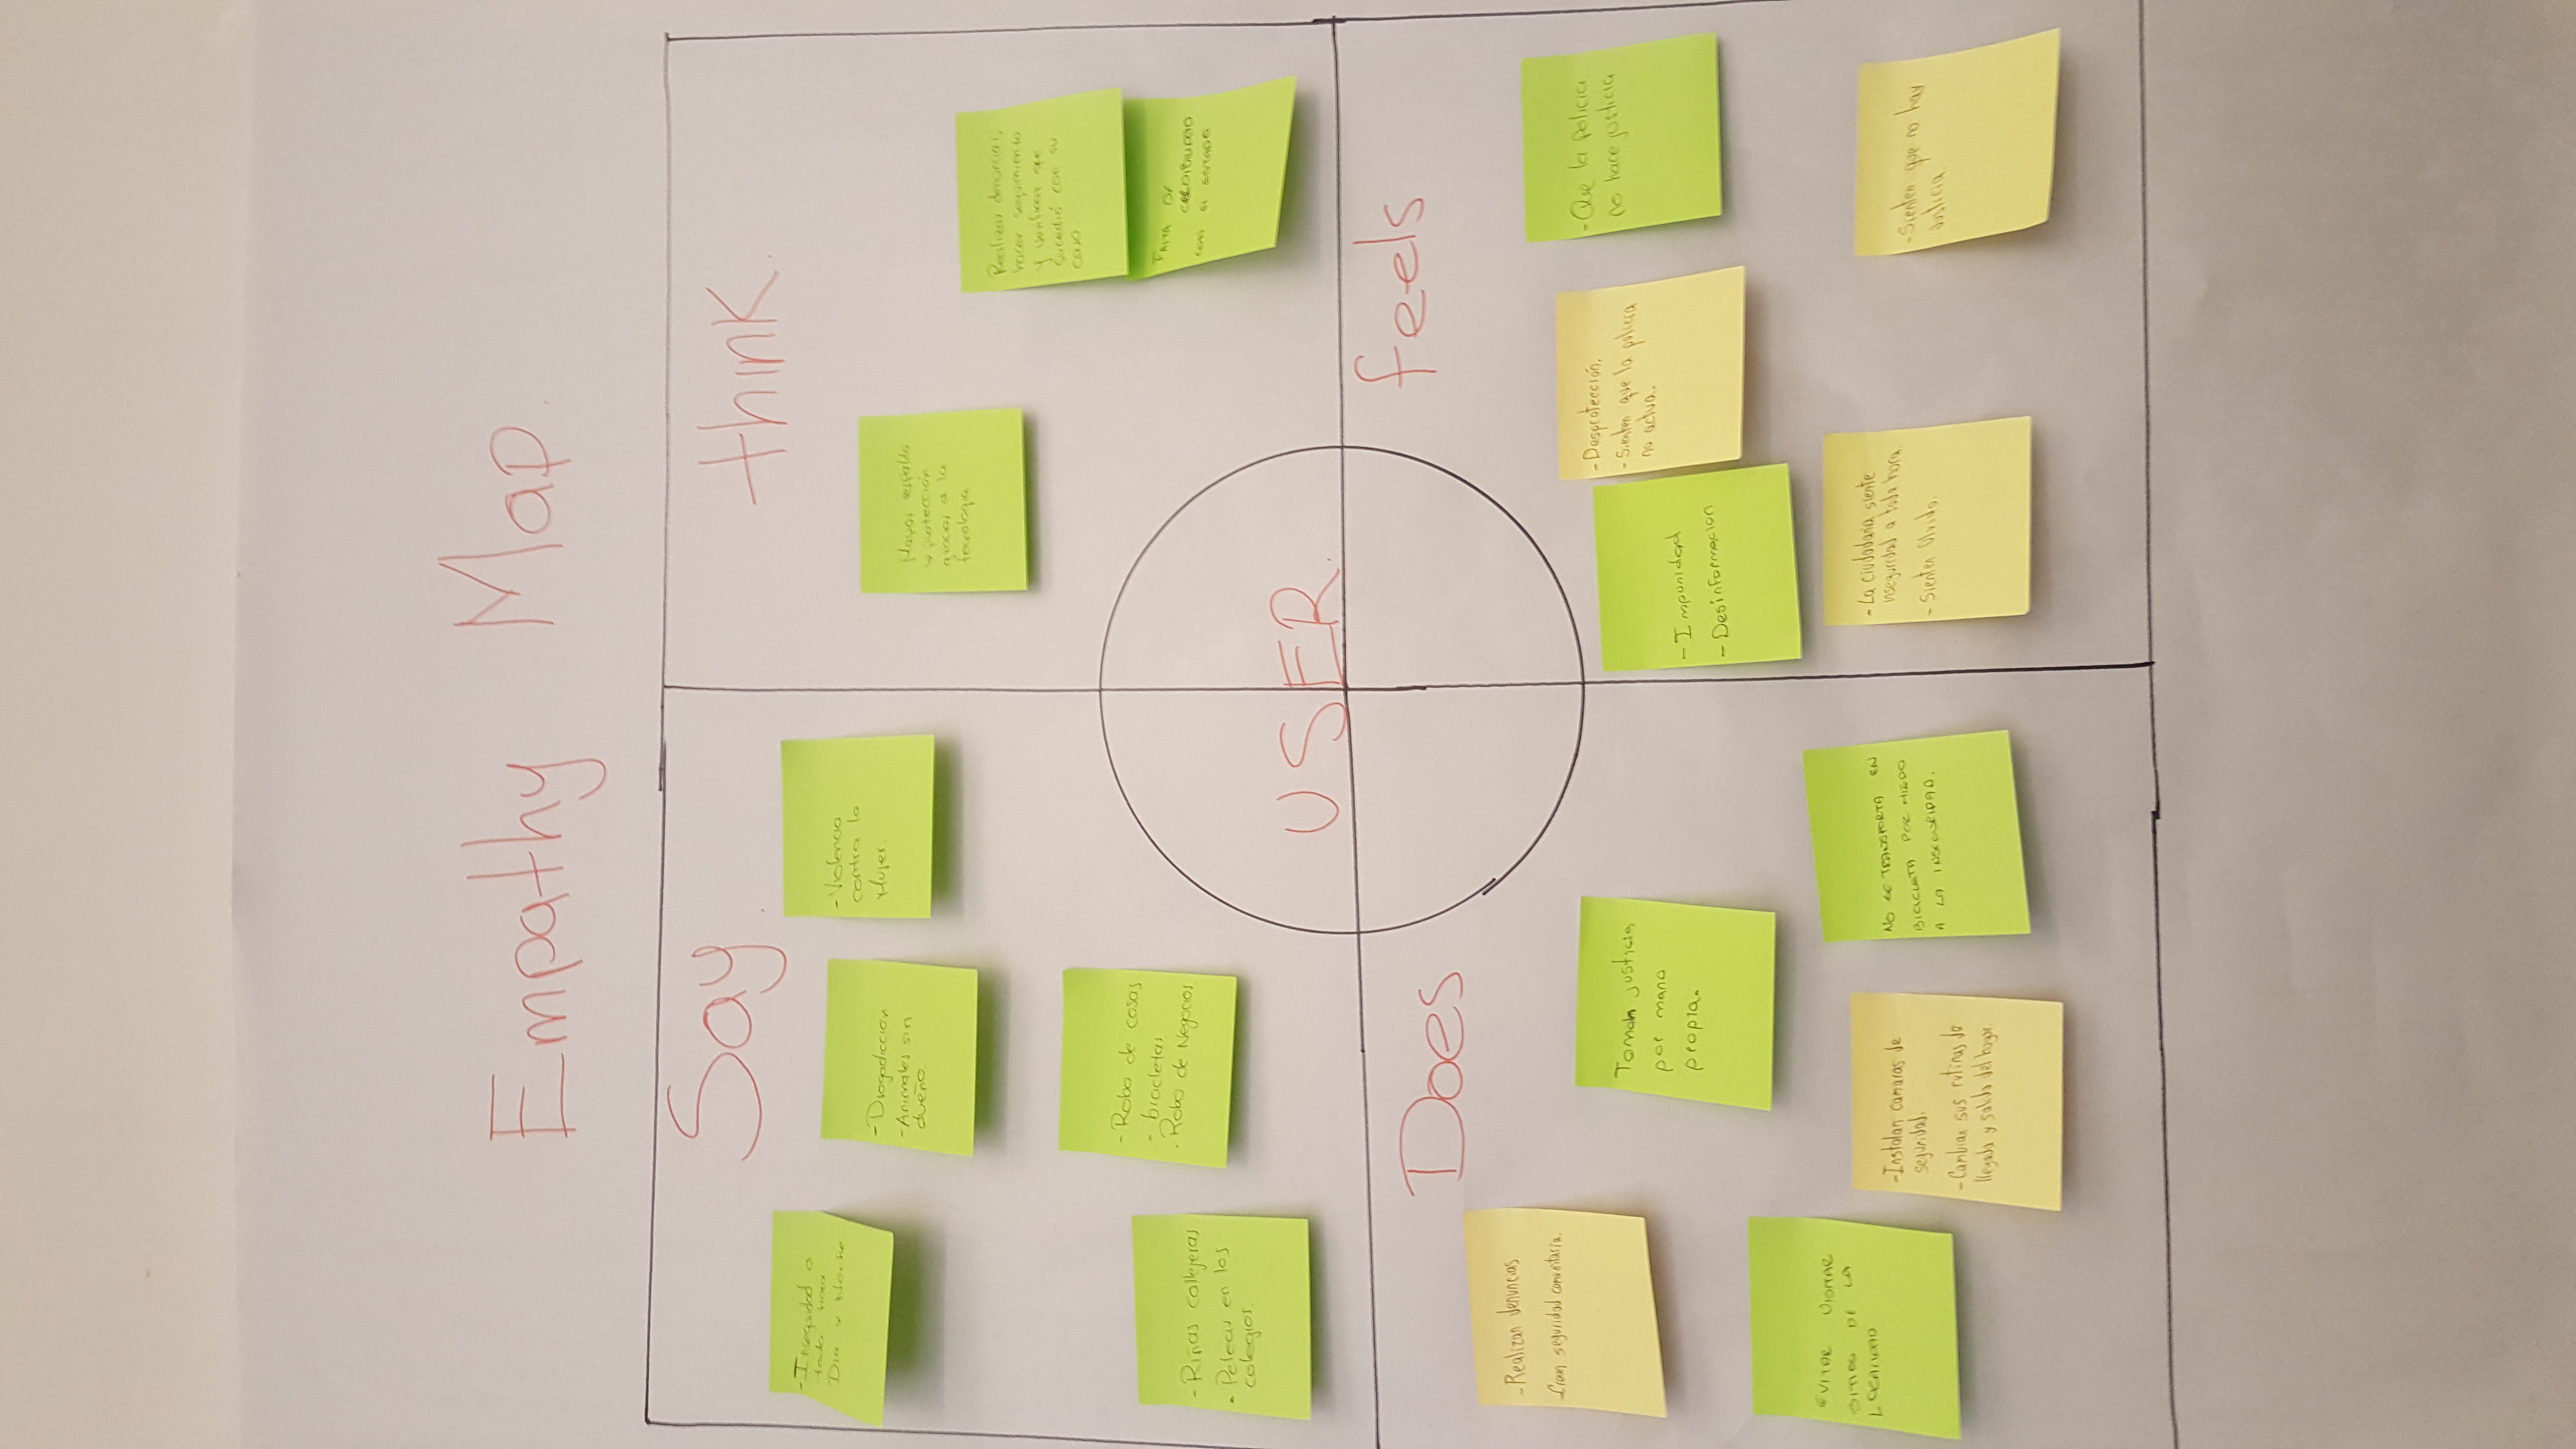 Empathy Map.
Say.
-Inseguridad a
toda hora
Dia y Noche
-Drogadiccion
-Animales sin
dueño
-Violencia
contra la
Mujer.
-Riñas callejeras
-Peleas en los
colegios.
-Robo de cosas
-bicicletas
.Robo de Negocios
think.
Mayor respaldo
y protección
gracias a la
tecnologia
Realizar denuncias,
hacer seguimiento
y verificar que
sucedió con su
caso.
FALTA DE
CREDIBILIDAD
CON EL ESTADO
USER.
Does
-Realizan denuncias.
-Crean seguridad comunitaria.
Toman justicia
por mano
propia.
EVITAR VISITAR
SITIOS DE LA
LOCALIDAD
-Instalan camaras de
seguridad.
-Cambian sus rutinas de
llegada y salida del hogar.
NO SE TRANSPORTA EN
BICICLETA POR MIEDO
A LA INSEGURIDAD.
feels
-Impunidad
-Desinformacion
-Desprotección.
-Sienten que la policia
no actua.
-Que la policia
no hace justicia
-La ciudadania siente
inseguridad a toda hora.
-Sienten Olvido.
-Sienten que no hay
Justicia.